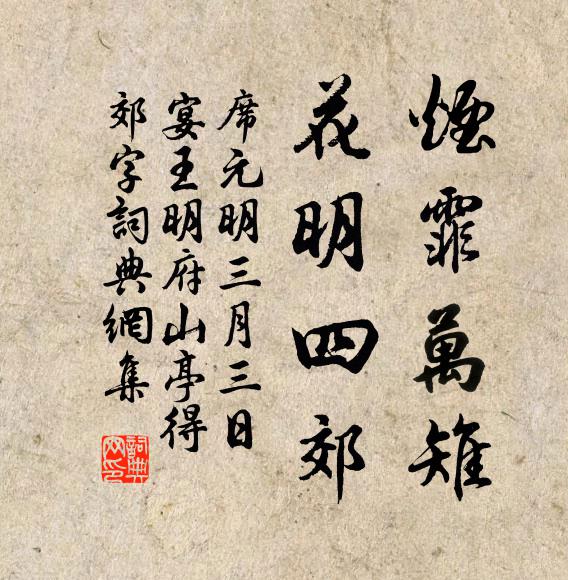 煙霏萬雉
花明四郊
席元明三月三日
宴王明府山亭得
郊字詞典網集
詞典网印